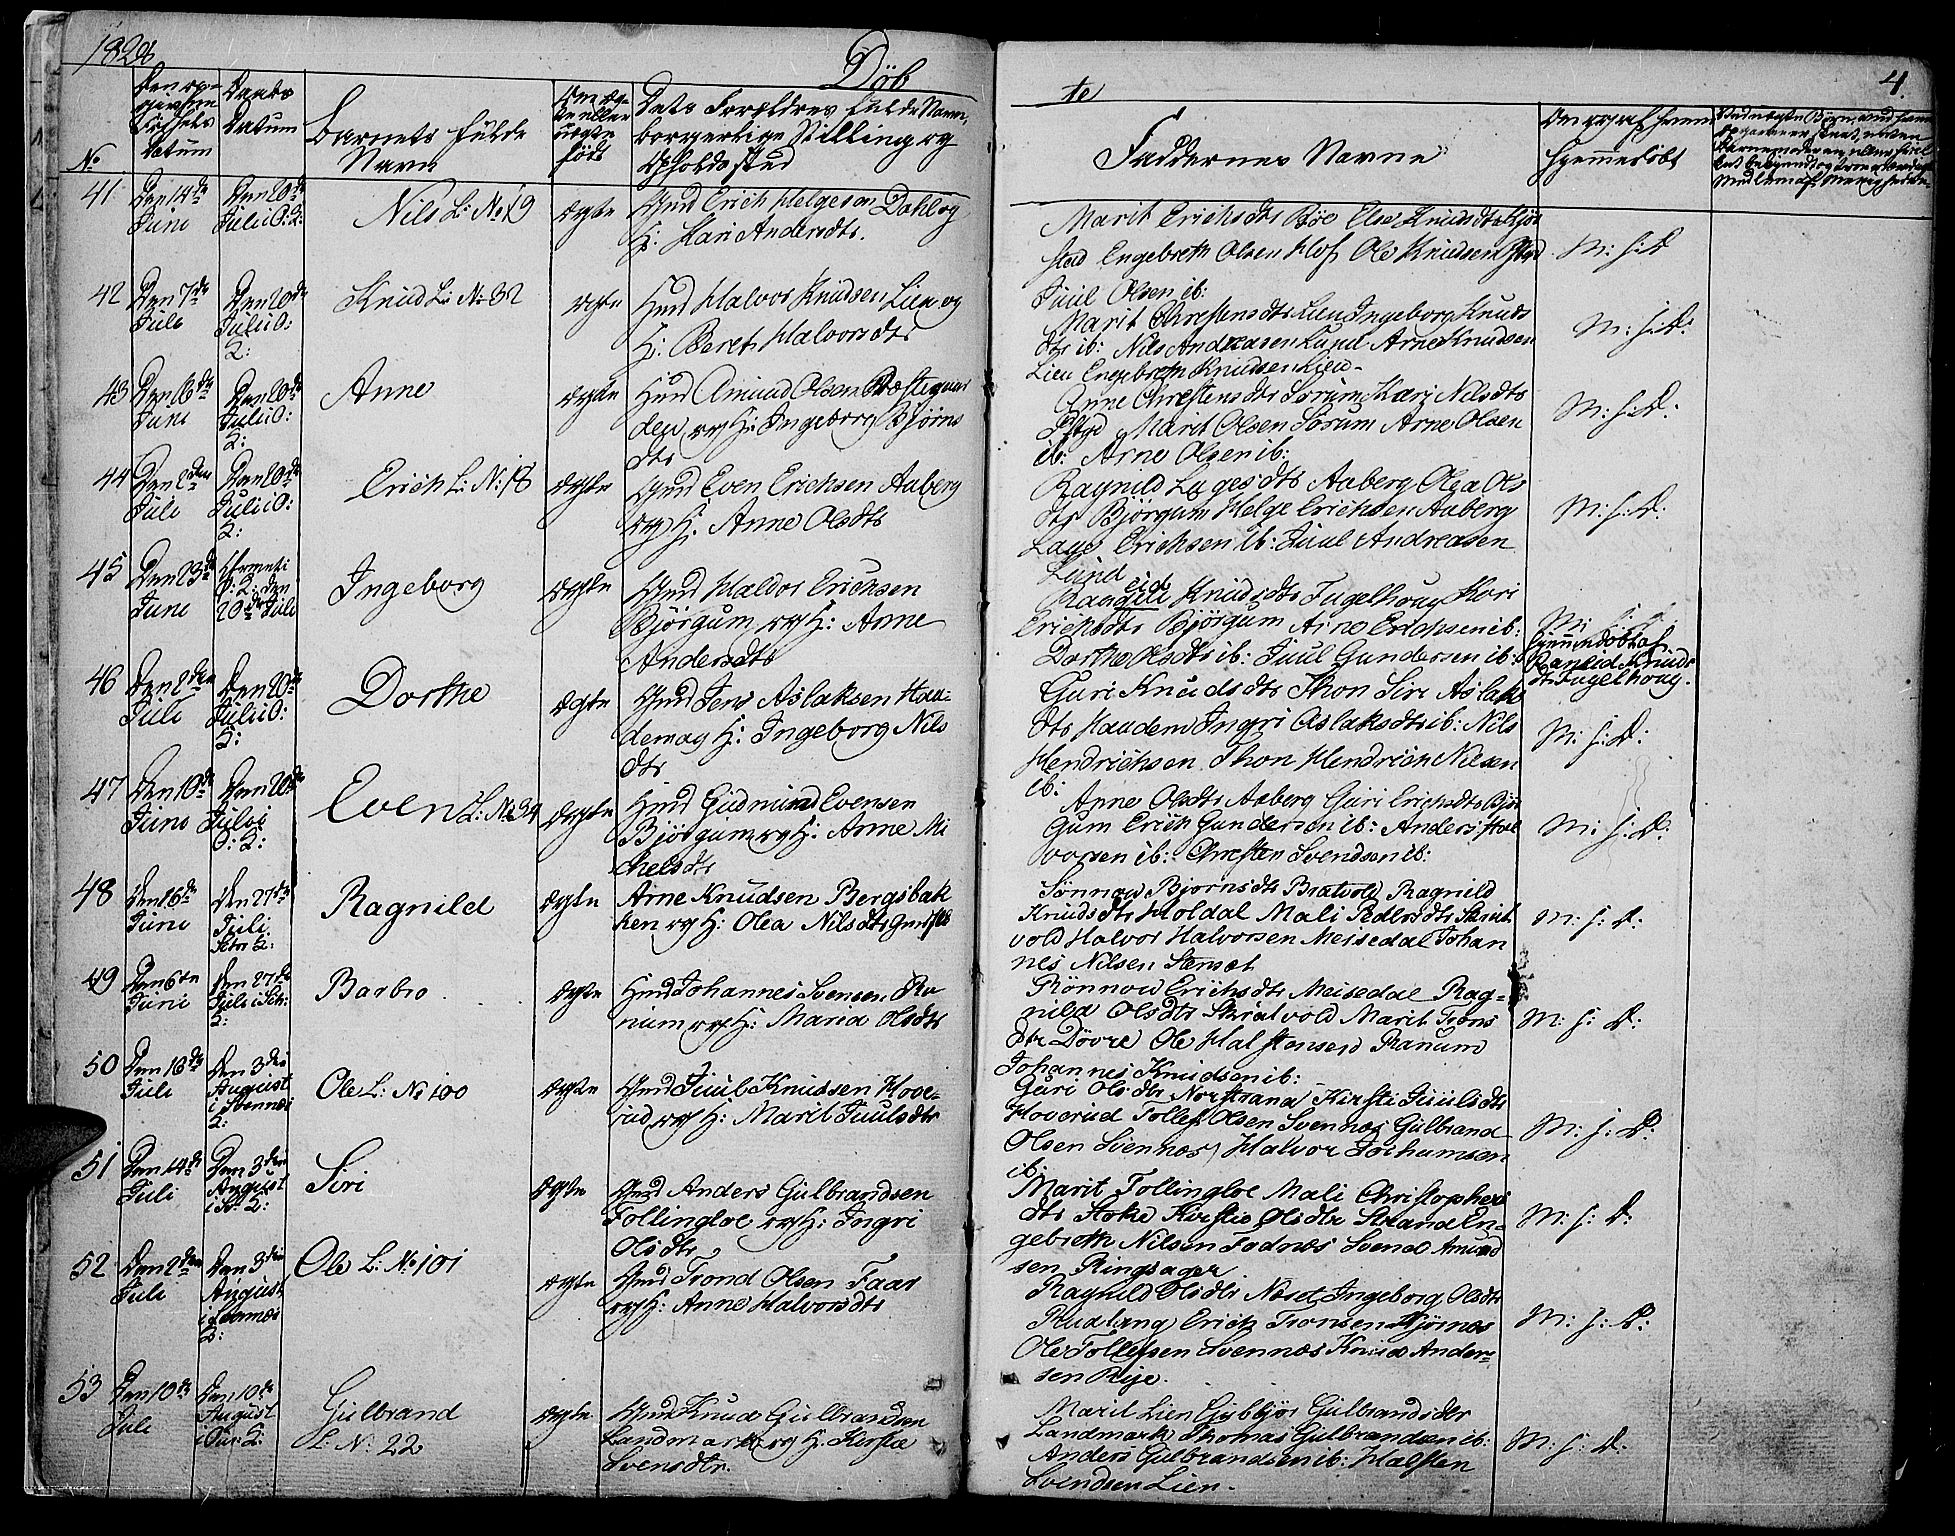 1828
Döb
te
4
No
Den op-
givne
Födsels
Datum
Daabs
Datum
Barnets fulde
Navn
Om æg-
te eller
uægte
födt
Dets Forældres fulde Navn,
borgerlige Stilling og
Opholdssted
Faddernes Navne
Om og af hvem
hjemmedöbt
41
Den 14de
Juni
Den 20de
Juli i O: 2:
Nils L: No 19
Ægte
Gmd Erich Helgesen Dahl og
H: Kari Andersdtr.
Marit Erichsdtr Böe Else Knudsdtr
stad Engebreth Olsen Hof Ole Knudsen
Juul Olsen ib:
M: f: D
42
Den 7de
Juli
Den 20de
Juli i O:
2:
Knud L: No 32
Ægte
Hmd Halvor Knudsen Lien og
H: Beret Halvorsdtr
Marit Christensdtr Lien Ingeborg Knuds
dtr ib: Nils Andreasen Lund Arne Knudsen
Lien Engebreth Knudsen Lien
M: f: D:
43
Den 6de
Juni
Den 20de
Juli i O:
2:
Anne
Ægte
Hmd Amund Olsen Præstegaar
den og H: Ingeborg Björns
dtr
Anne Christensdtr Sörum Kari Nilsdtr
Marit Olsen Sörum Arne Olsen
ib: Arne Olsen ib:
M: f: D:
44
Den 2den
Juli
Den 20de
Juli i O:
2:
Erich L: N: 18
Ægte
Gmd Even Erichsen Aaberg
og H: Anne Olsdtr
Ragnild Aaberg Olea Ols
dtr Björgum Helge Erichsen Aaberg
Lage Erichsen ib: Juul Andreasen
Lund
M: f: D:
45
Den 23de
Juni
O: 2: den
20de Juli
Ingeborg
Ægte
Gmd Haldor Erichsen
Björgum og H: Anne
Andersdtr
Knudsdtr Fugelhoug Kari
Erichsdtr Björgum Arne Erichsen ib:
Dorthe Olsdtr ib: Juul Gundersen ib:
M: f: d:
hjemmedöbt af
Ranlid Knuds
dtr Fugelhoug.
46
Den 2den
Juli
Den 20de
Juli i O:
2:
Dorthe
Ægte
Gmd Jens Aslaksen Hau-
dem og H: Ingeborg Nils
dtr
Guri Knudsdtr Thon Siri Aslaks
dtr Haudem Ingri Aslaksdtr ib: Nils
Hendrichsen Thon Hendrich Nilsen
ib:
M: f: D:
47
Den 10de
Juni
Den 20de
Juli i
O: 2:
Even L: No 34
Ægte
Hmd Gudmund Evensen
Björgum og H: Anne Mi
chelsdtr
Anne Olsdtr Aaberg Guri Erichsdtr Björ
gum Erich Gundersen ib: Anders Hal
vorsen ib: Christen Svendsen ib:
M: f: D:
48
Den 16de
Juni
Den 27de
Juli
2:
Ragnild
Ægte
Arne Knudsen Bergsbak
ken og H: Olea Nilsdtr
Sönnow Björnsdtr Bratvold Ragnild
Knudsdtr Holdal Mali Pedersdtr Skrut
vold Halvor Halvorsen Meisedal Johan
nes Nilsen Semset
M: f: D:
49
Den 6te
Juni
Den 27de
Juli i Sk:
2:
Barbro
Ægte
Hmd Johannes Svensen Ra
num og H: Maria Olsdtr
Rönnow Erichsdtr Meisedal Rag-
nild Olsdtr Skrutvold Marit Trons
dtr Dövre Ole Halstensen Ranum
Johannes Knudsen ib:
M: f: D:
50
Den 16de
Juli
Den 3die
August
i Svennes
2:
Ole L: No 100
Ægte
Gmd Juul Knudsen Hove-
rud og H: Marit Juulsdtr
Guri Olsdtr Norstrand Kirsti Juulsdtr
Hoverud Tollef Olsen Svennæs Gulbrand
Olsen Svennæs Halvor Jochumsen
ib:
M: f: D:
51
Den 14de
Juli
Den 3die
August
i Sv: 2:
Siri
Ægte
Gmd Anders Gulbrandsen
Follingloe og H: Ingri
Olsdtr
Marit Follingloe Mali Christophers
dtr Stoke Kirstie Olsdtr Strand En-
gebreth Nilsen Fodnæs Svend Amund
sen Ringsager
M: f: D:
52
Den 2den
Juli
Den 3die
August
i Svennæs
2:
Ole L: No 101
Ægte
Gmd Trond Olsen Faar
og H: Anne Halvorsdtr
Ragnild Olsdtr Næset Ingeborg Olsdtr
Rudlang Erich Tronsen Björnæs
Ole Tollefsen Svennæs Knud Ander-
sen Rije.
M: f: D:
53
Den 10de
Juli
Den 10de
August
i Our: 2:
Gulbrand
L: N: 22
Ægte
Gmd Knud Gulbrandsen
Landmark og H: Kirstie
Svensdtr.
Marit Lien Gjybjör Gulbrandsdtr
Landmark Thomas Gulbrandsen ib:
Anders Gulbrandsen ib: Halsten
Svendsen Lien.
M: f: D: